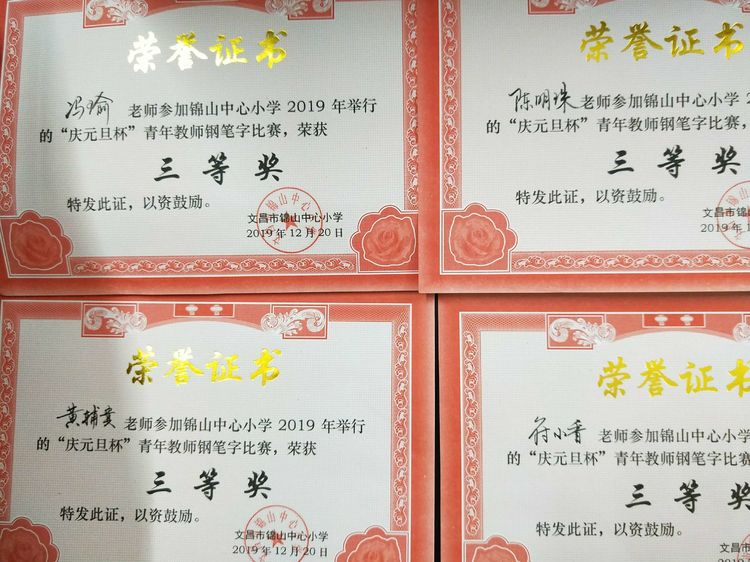 荣誉证书
冯瑜 老师参加锦山中心小学 2019 年举行
的“庆元旦杯”青年教师钢笔字比赛，荣获
三等奖
特发此证，以资鼓励。
文昌市锦山中心小学
2019 年 12 月 20 日
荣誉证书
陈明珠老师参加锦山中心小学
的“庆元旦杯”青年教师钢笔字比赛，
三等奖
特发此证，以资鼓励。
文昌市锦山中心小学
2019 年 1
荣誉证书
黄辅 老师参加锦山中心小学 2019 年举行
的“庆元旦杯”青年教师钢笔字比赛，荣获
三等奖
特发此证，以资鼓励。
文昌市锦山中心小学
2019 年 12 月 20 日
荣誉证书
符小香 老师参加锦山中心小学
的“庆元旦杯”青年教师钢笔字比赛
三等奖
特发此证，以资鼓励。
文昌市